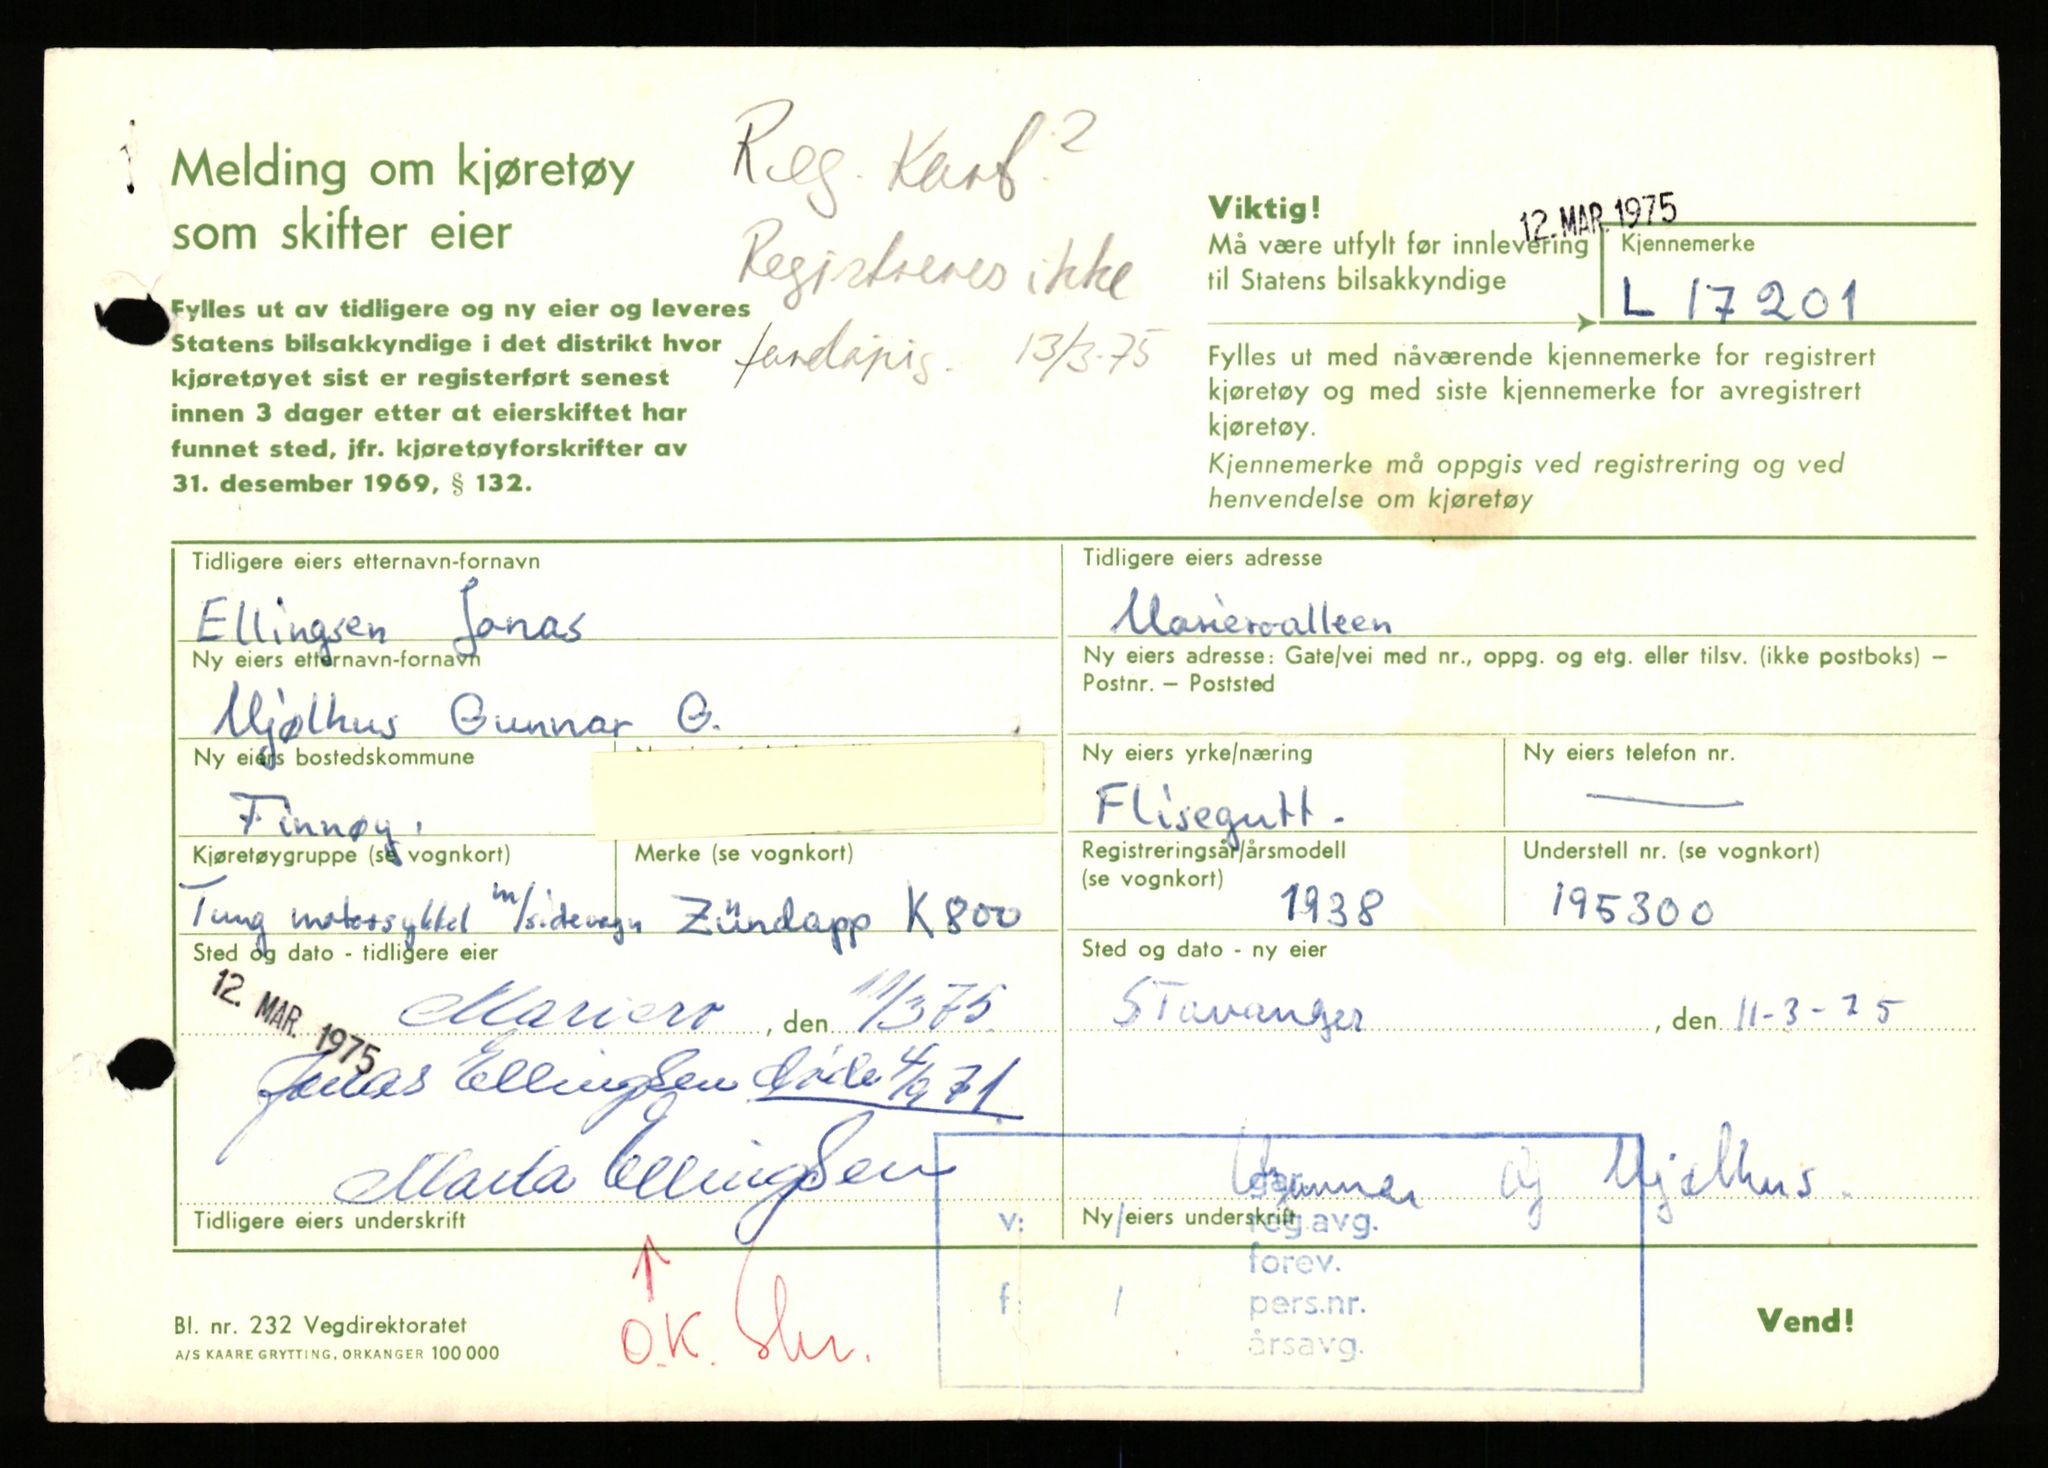 Melding om kjøretøy
som skifter eier
Fylles ut av tidligere og ny eier og leveres
Statens bilsakkyndige i det distrikt hvor
kjøretøyet sist er registerført senest
innen 3 dager etter at eierskiftet har
funnet sted, jfr. kjøretøyforskrifter av
31. desember 1969, § 132.
Reg. Kart?
Registreres ikke
foreløpig. 13/3-75
12. MAR. 1975
Viktig!
Må være utfylt før innlevering
til Statens bilsakkyndige
Kjennemerke
L 17201
Fylles ut med nåværende kjennemerke for registrert
kjøretøy og med siste kjennemerke for avregistrert
kjøretøy.
Kjennemerke må oppgis ved registrering og ved
henvendelse om kjøretøy
Tidligere eiers etternavn-fornavn
Ellingsen Jonas
Tidligere eiers adresse
Marieroalleen
Ny eiers etternavn-fornavn
Mjølhus Gunnar G.
Ny eiers adresse: Gate/vei med nr., oppg. og etg. eller tilsv. (ikke postboks) –
Postnr. – Poststed
Ny eiers bostedskommune
Finnøy.
Ny eiers yrke/næring
Flisegutt.
Ny eiers telefon nr.
Kjøretøygruppe (se vognkort)
Tung motorsykkel m/sidevogn
Merke (se vognkort)
Zündapp K800
Registreringsår/årsmodell
(se vognkort)
1938
Understell nr. (se vognkort)
195300
Sted og dato - tidligere eier
12. MAR. 1975
Mariero, den 11/3 75.
Sted og dato - ny eier
Stavanger, den 11-3-75
Jonas Ellingsen døde 4/9 71.
Marta Ellingsen
Gunnar G Mjølhus.
Tidligere eiers underskrift
Ny eiers underskrift
v: /
reg.avg.
forev.
f: /
pers.nr.
årsavg.
O.K.
Bl. nr. 232 Vegdirektoratet
A/S KAARE GRYTTING, ORKANGER 100 000
Vend!